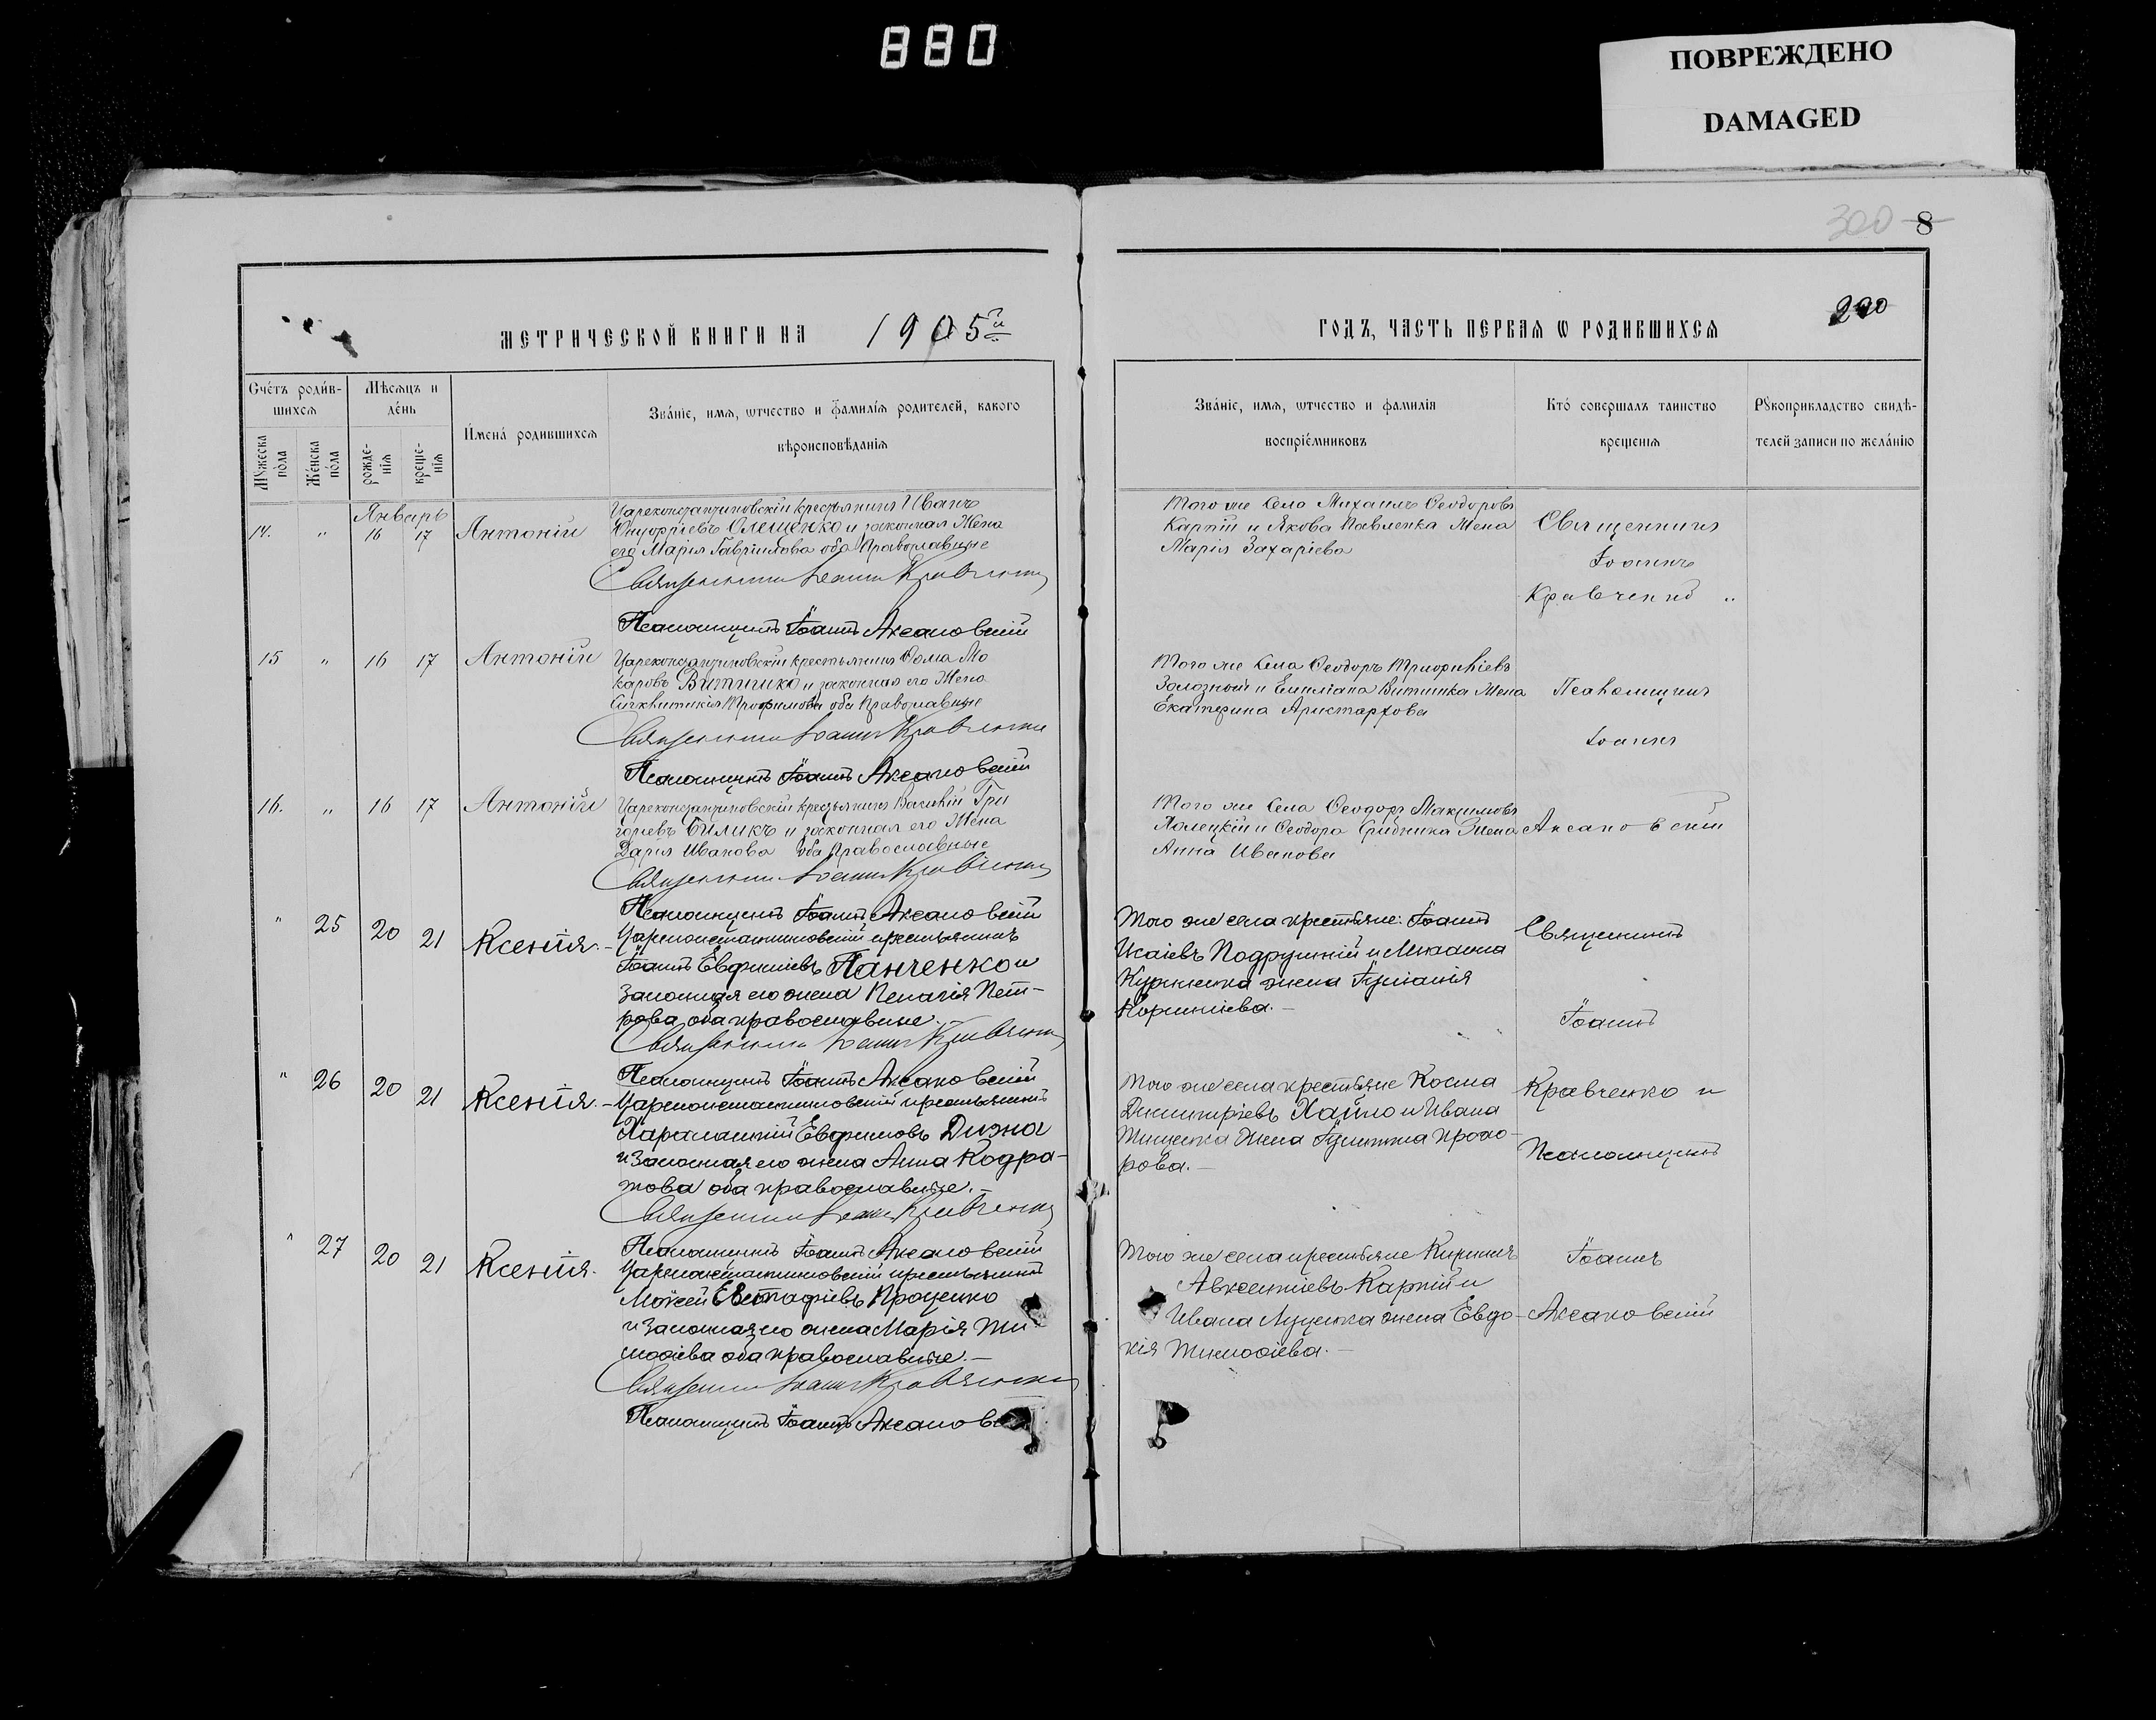 880
ПОВРЕЖДЕНО
DAMAGED
300 8
220
МЕТРИЧЕСКОЙ КНИГИ НА 1905й
ГОДЪ, ЧАСТЬ ПЕРВАЯ Ѡ РОДИВШИХСѦ
Счéтъ роди́в-
шихсѧ
Мꙋжеска пола
Же́нска пóла
Мѣсѧцъ и
дéнь
рожде-
нїѧ
креще-
нїѧ
И́мена́ родившихсѧ
Зва́нїе, имѧ, ѿтчество и фамилїѧ родителей, какого
вѣроисповѣданїѧ
Зва́нїе, имѧ, ѿтчество и фамилїѧ
воспрїе́мниковъ
Ктó совершалъ таинство
крещенїѧ
Рꙋкоприкладство свидѣ-
телей записи по желáнїю
Январь
14. " 16 17 Антоній
Цареконстантиновскій крестьянинъ Иванъ
Онуфріевъ Олещенко и законная Жена
его Марія Гавріилова оба Православные
Священникъ Іоаннъ Кравченко
Псаломщикъ Іоаннъ Аксановскій
Того же Села Михаилъ Ѳеодоровъ
Карпій и Якова Павленка Жена
Марія Захаріева
Священникъ
Іоаннъ
Кравченко и
15 " 16 17 Антоній
Цареконстантиновскій крестьянинъ Ѳома Ма
каровъ и законная его Жена
Трофимова оба Православные
Священникъ Іоаннъ Кравченко
Псаломщикъ Іоаннъ Аксановскій
Того же Села Ѳеодоръ
Жена
Екатерина Аристархова
Псаломщикъ
Іоаннъ
16. " 16 17 Антоній
Цареконстантиновскій крестьянинъ Василій Гри
горіевъ Биликъ и законная его Жена
Дарія Иванова оба Православные
Священникъ Іоаннъ Кравченко
Псаломщикъ Іоаннъ Аксановскій
Того же Села Ѳеодоръ Максимовъ
и Ѳеодора Жена
Анна Иванова
Аксановскій
" 25 20 21 Ксенія. –
Цареконстантиновскій крестьянинъ
Іоаннъ Евфиміевъ Панченко и
законная его жена Пелагія Пет-
рова, оба православные. –
Священникъ Іоаннъ Кравченко
Псаломщикъ Іоаннъ Аксановскій
Того же села крестьяне: Іоаннъ
Исаіевъ и Михаила
жена Іуліанія
Корниліева. –
Священникъ
Іоаннъ
" 26 20 21 Ксенія. –
Цареконстантиновскій крестьянинъ
Харалампій Евфимовъ Дижа
и законная его жена Анна Кодра-
това оба православные. –
Священникъ Іоаннъ Кравченко
Псаломщикъ Іоаннъ Аксановскій
Того же села крестьяне Косма
Димитріевъ Хайло и Ивана
Тищенка жена Прохо-
рова. –
Кравченко и
Псаломщикъ
" 27 20 21 Ксенія.
Цареконстантиновскій крестьянинъ
Моисей Евстафіевъ Проценко
и законная его жена Марія Ти-
моѳіева оба православные. –
Священникъ Іоаннъ Кравченко
Псаломщикъ Іоаннъ Аксанов
Того же села крестьяне Кириллъ
Авксентіевъ Карпій и
Ивана Луценка жена Евдо-
кія Тимоѳіева. –
Іоаннъ
Аксановскій